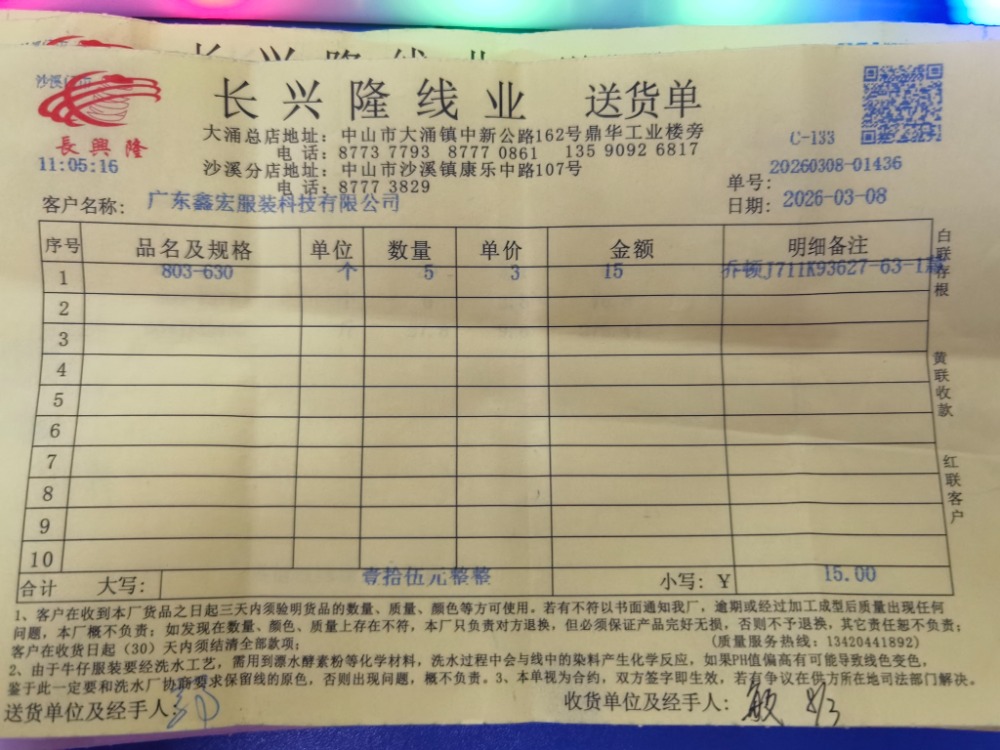 长兴隆线业 送货单
長興隆
大涌总店地址：中山市大涌镇中新公路162号鼎华工业楼旁
电 话：8773 7793 8777 0861 135 9092 6817
沙溪分店地址：中山市沙溪镇康乐中路107号
电 话：8777 3829
C-133
11:05:16
单号：20260308-01436
客户名称：广东鑫宏服装科技有限公司
日期：2026-03-08
序号 品名及规格 单位 数量 单价 金额 明细备注
1 803-630 个 5 3 15 乔顿J711K93627-63-1
2
3
4
5
6
7
8
9
10
合计 大写：壹拾伍元整整 小写：￥ 15.00
白联存根
黄联收款
红联客户
1、客户在收到本厂货品之日起三天内须验明货品的数量、质量、颜色等方可使用。若有不符以书面通知我厂，逾期或经过加工成型后质量出现任何
问题，本厂概不负责；如发现在数量、颜色、质量上存在不符，本厂只负责对方退换，但必须保证产品完好无损，否则不予退换，其它责任恕不负责；
客户在收货日起（30）天内须结清全部款项； (质量服务热线：13420441892)
2、由于牛仔服装要经洗水工艺，需用到漂水酵素粉等化学材料，洗水过程中会与线中的染料产生化学反应，如果PH值偏高有可能导致线色变色，
鉴于此一定要和洗水厂协商要求保留线的原色，否则出现问题，概不负责。3、本单视为合约，双方签字即生效，若有争议在供方所在地司法部门解决。
送货单位及经手人：
收货单位及经手人：敏 8/3